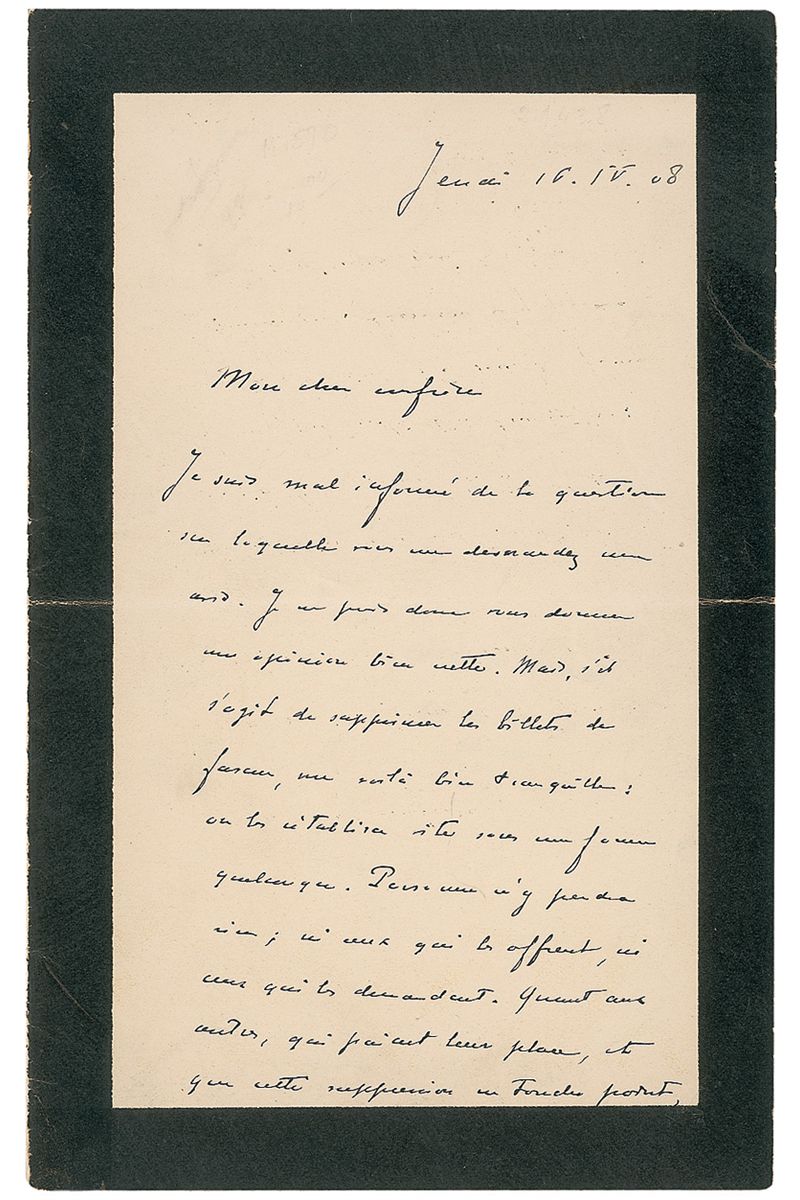 Jeudi IV. IV. 08
Mon cher confrère
Je suis mal informé de la question
sur laquelle vous me demandez mon
avis. Je ne puis donc vous donner
une opinion bien nette. Mais, s'il
s'agit de supprimer les billets de
faveur, me voilà bien tranquille :
on les rétablira vite sous une forme
quelconque. Personne n'y perdra
rien ; ni ceux qui les offrent, ni
ceux qui les demandent. Quant aux
autres, qui paient leur place, et
que cette suppression ne touche point,